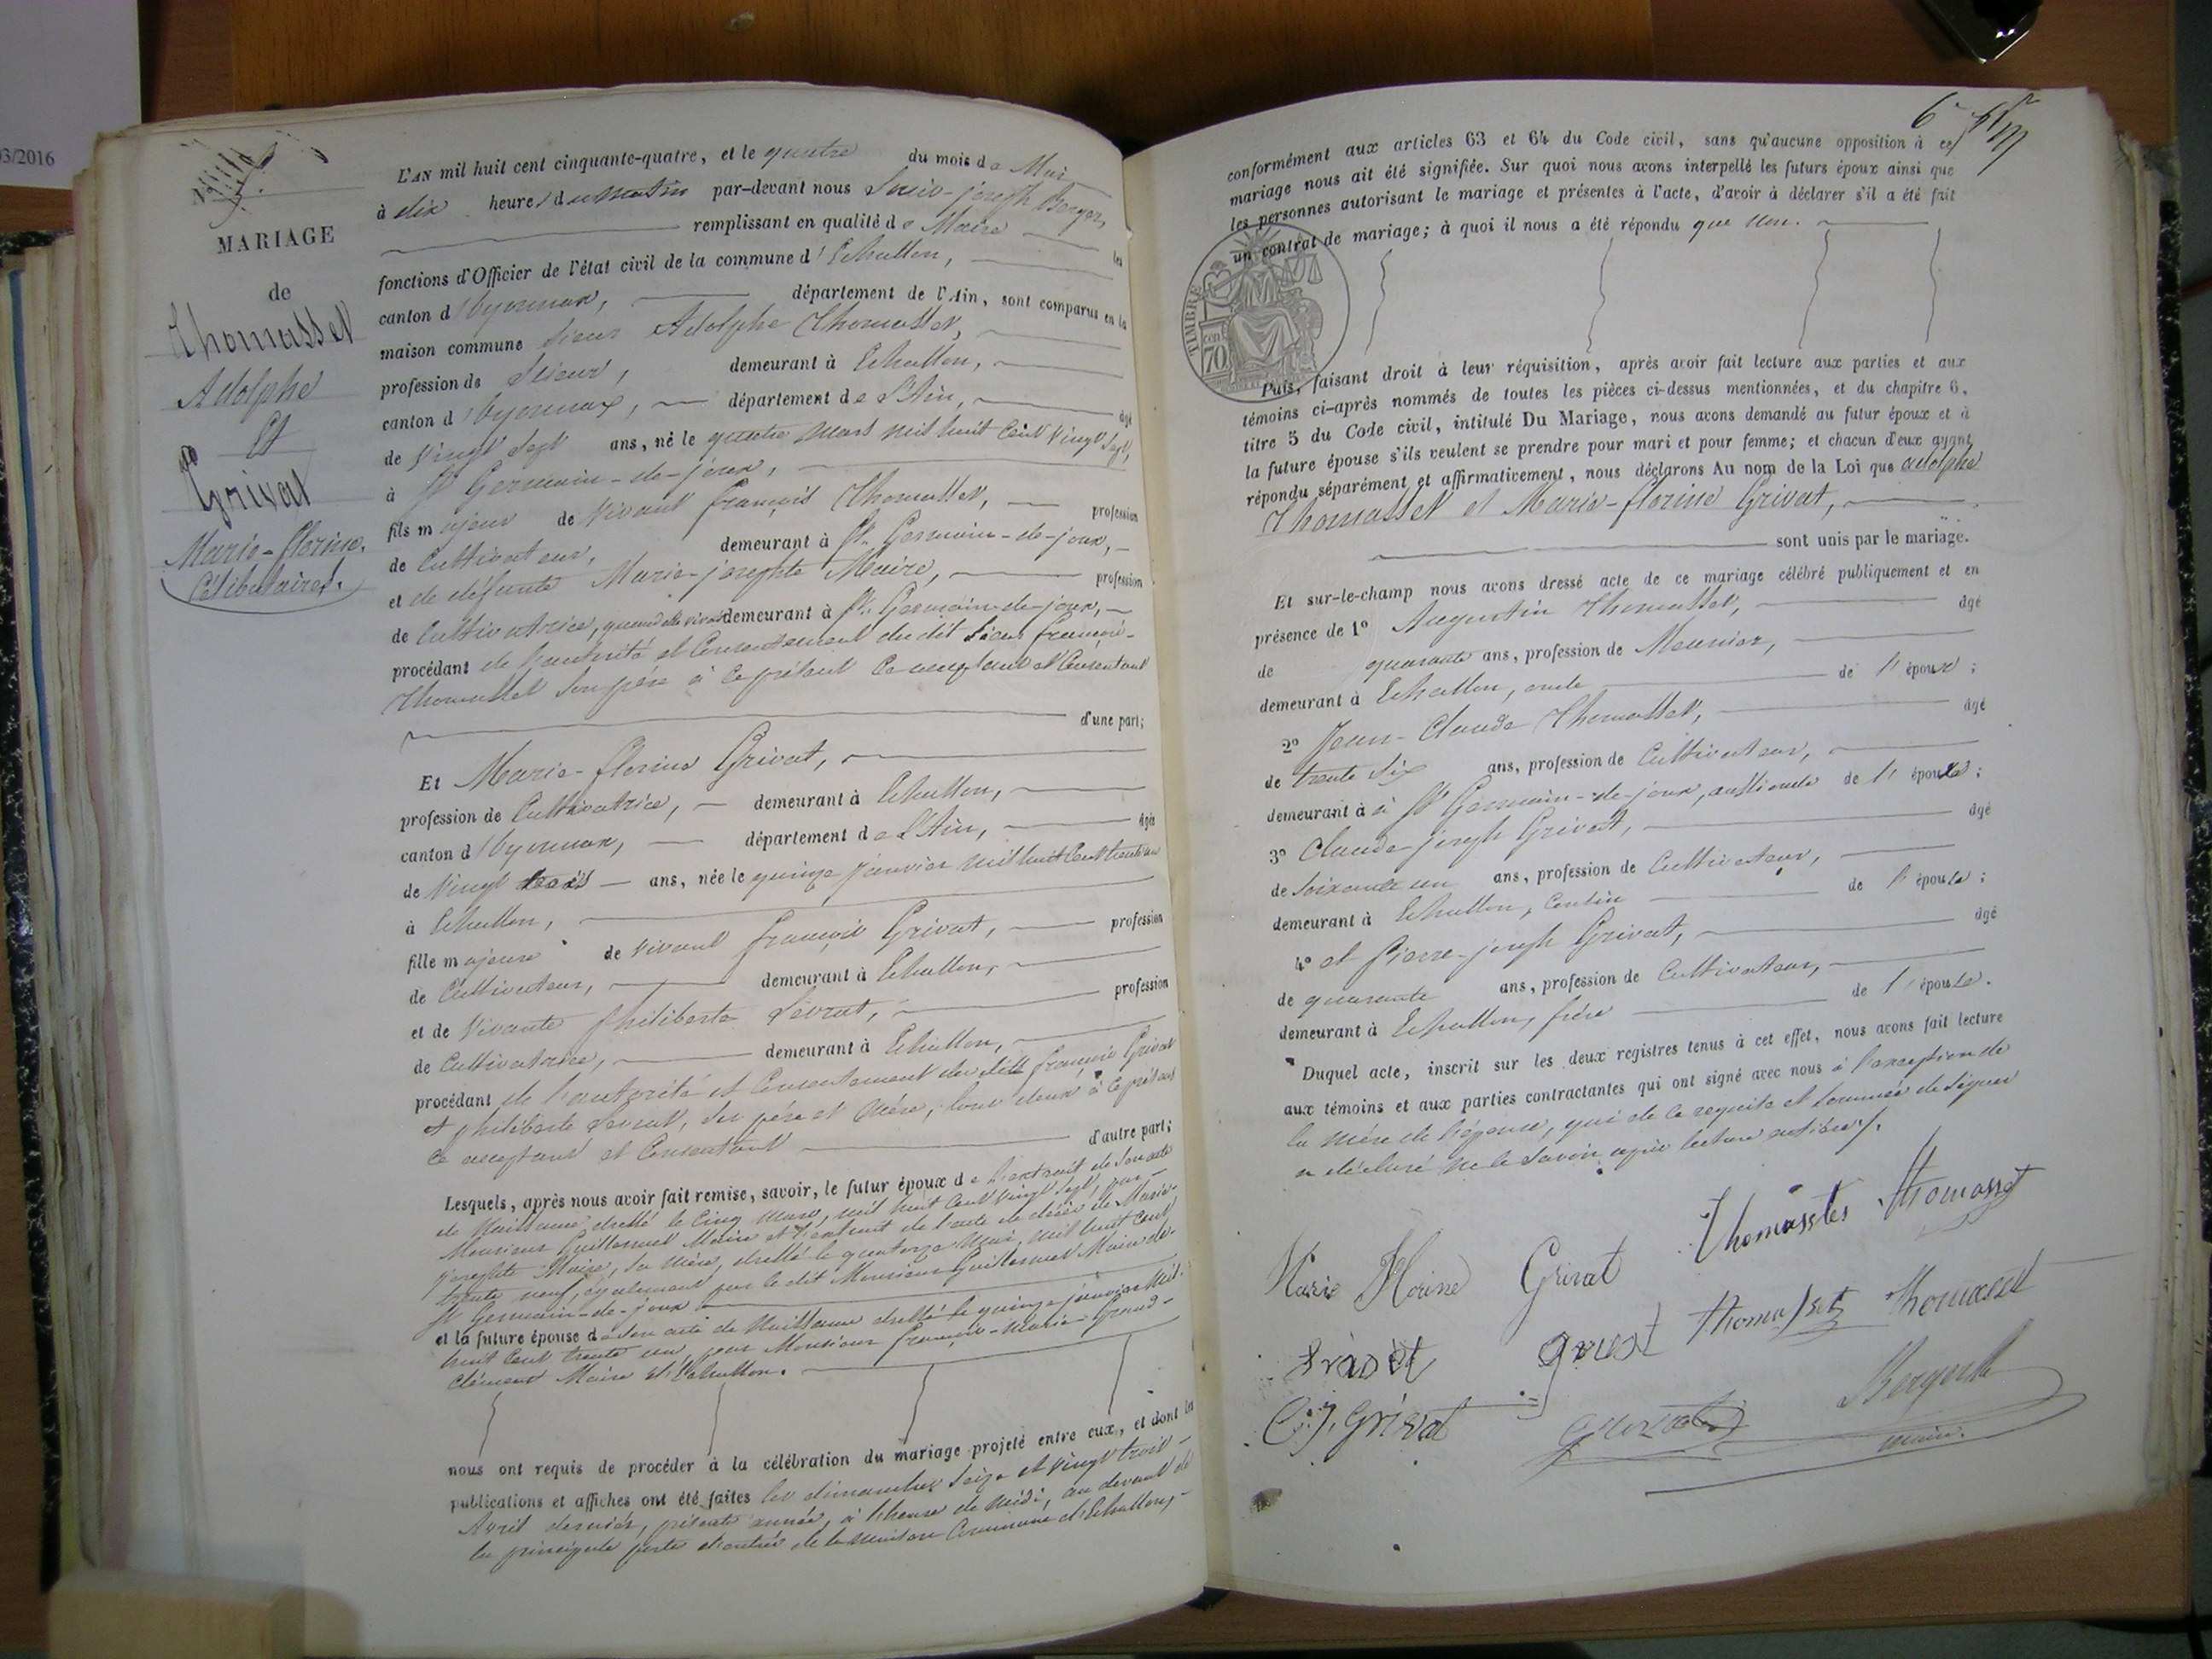 03/2016
MARIAGE
de
Thomasset
Adolphe
Et
Grivat
Marie-florine.
Célibataires.
L'AN mil huit cent cinquante-quatre, et le quatre du mois de Mai
à dix heures du matin par-devant nous Louis-joseph Berger,
remplissant en qualité de Maire les
fonctions d'Officier de l'état civil de la commune d'Echallon,
canton d'Oyonnax, département de l'Ain, sont comparus en la
maison commune sieur Adolphe Thomasset,
profession de Scieur, demeurant à Echallon,
canton d'Oyonnax, département de l'Ain, âgé
de vingt sept ans, né le quatre mars mil huit cent vingt sept,
à St Germain-de-joux,
fils majeur de vivant françois Thomasset, profession
de Cultivateur, demeurant à St. Germain-de-joux,
et de défunte Marie-josephte Maire, profession
de Cultivatrice, quand elle vivait demeurant à St. Germain-de-joux,
procédant de l'autorité et Consentement du dit Sieur françois
Thomasset son père à ce présent ce acceptant et Consentant
d'une part;
Et Marie-florine Grivat,
profession de Cultivatrice, demeurant à Echallon,
canton d'Oyonnax, département de l'Ain, âgée
de vingt trois ans, née le quinze janvier mil huit cent trente un
à Echallon,
fille majeure de vivant françois Grivat, profession
de Cultivateur, demeurant à Echallon,
et de vivante philiberte Sévrat, profession
de Cultivatrice, demeurant à Echallon,
procédant de l'autorité et Consentement des dits françois Grivat
et philiberte Sevrat, ses père et mère, tous deux à ce présent
ce acceptant et Consentant d'autre part;
Lesquels, après nous avoir fait remise, savoir, le futur époux de l'extrait de son acte
de Naissance dressé le cinq mars, mil huit cent vingt sept, par
Monsieur Guillermet Maire et l'extrait de l'acte de décès de Marie-
josephte Maire, sa mère, dressé le quatorze mai, mil huit cent
trente neuf, également par le dit Monsieur Guillermet Maire de
St Germain-de-joux
et la future épouse de son acte de Naissance dressé le quinze janvier mil
huit cent trente un, par Monsieur françois-marie Grand-
Clément Maire d'Echallon.
nous ont requis de procéder à la célébration du mariage projeté entre eux, et dont les
publications et affiches ont été faites les dimanches seize et vingt trois
Avril dernier, présente année, à l'heure de midi, au devant de
la principale porte d'entrée de la maison Commune d'Echallon,
6
conformément aux articles 63 et 64 du Code civil, sans qu'aucune opposition à ce
mariage nous ait été signifiée. Sur quoi nous avons interpellé les futurs époux ainsi que
les personnes autorisant le mariage et présentes à l'acte, d'avoir à déclarer s'il a été fait
un contrat de mariage; à quoi il nous a été répondu que non.
TIMBRE
cen
70
Puis, faisant droit à leur réquisition, après avoir fait lecture aux parties et aux
témoins ci-après nommés de toutes les pièces ci-dessus mentionnées, et du chapitre 6,
titre 5 du Code civil, intitulé Du Mariage, nous avons demandé au futur époux et à
la future épouse s'ils veulent se prendre pour mari et pour femme; et chacun d'eux ayant
répondu séparément et affirmativement, nous déclarons Au nom de la Loi que adolphe
Thomasset et Marie-florine Grivat,
sont unis par le mariage.
Et sur-le-champ nous avons dressé acte de ce mariage célébré publiquement et en
présence de 1º Augustin Thomasset, âgé
de quarante ans, profession de Meunier,
demeurant à Echallon, oncle de l'époux;
2º Jean-Claude Thomasset, âgé
de trente six ans, profession de Cultivateur,
demeurant à à St Germain-de-joux, aussi oncle de l'époux;
3º Claude-joseph Grivat, âgé
de soixante un ans, profession de Cultivateur,
demeurant à Echallon, Cousin de l'épouse;
4º et Pierre-joseph Grivat, âgé
de quarante ans, profession de Cultivateur,
demeurant à Echallon, frère de l'épouse.
Duquel acte, inscrit sur les deux registres tenus à cet effet, nous avons fait lecture
aux témoins et aux parties contractantes qui ont signé avec nous à l'exception de
la mère de l'épouse, qui de ce requise et sommée de signer
a déclaré ne le savoir après lecture entière.
Thomasset Thomasset
Marie Florine Grivat
Thomasset Thomasset
C.J. Grivat
Berger
maire.